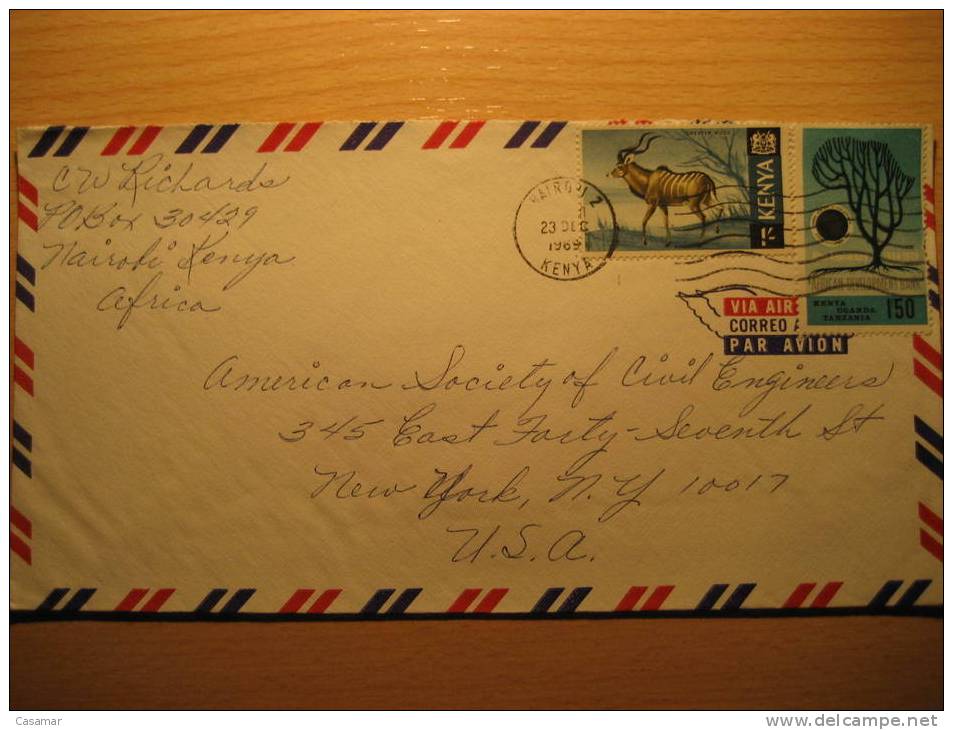 CW Richards
PO Box 30429
Nairobi Kenya
Africa
NAIROBI 2
23 DEC
1969
KENYA
GREATER KUDU
KENYA
1/-
AFRICAN DEVELOPMENT BANK
KENYA
UGANDA
TANZANIA
150
VIA AIR
CORREO A
PAR AVION
American Society of Civil Engineers
345 East Forty-Seventh St
New York, N.Y 10017
U.S.A.
Casamar
www.delcampe.net